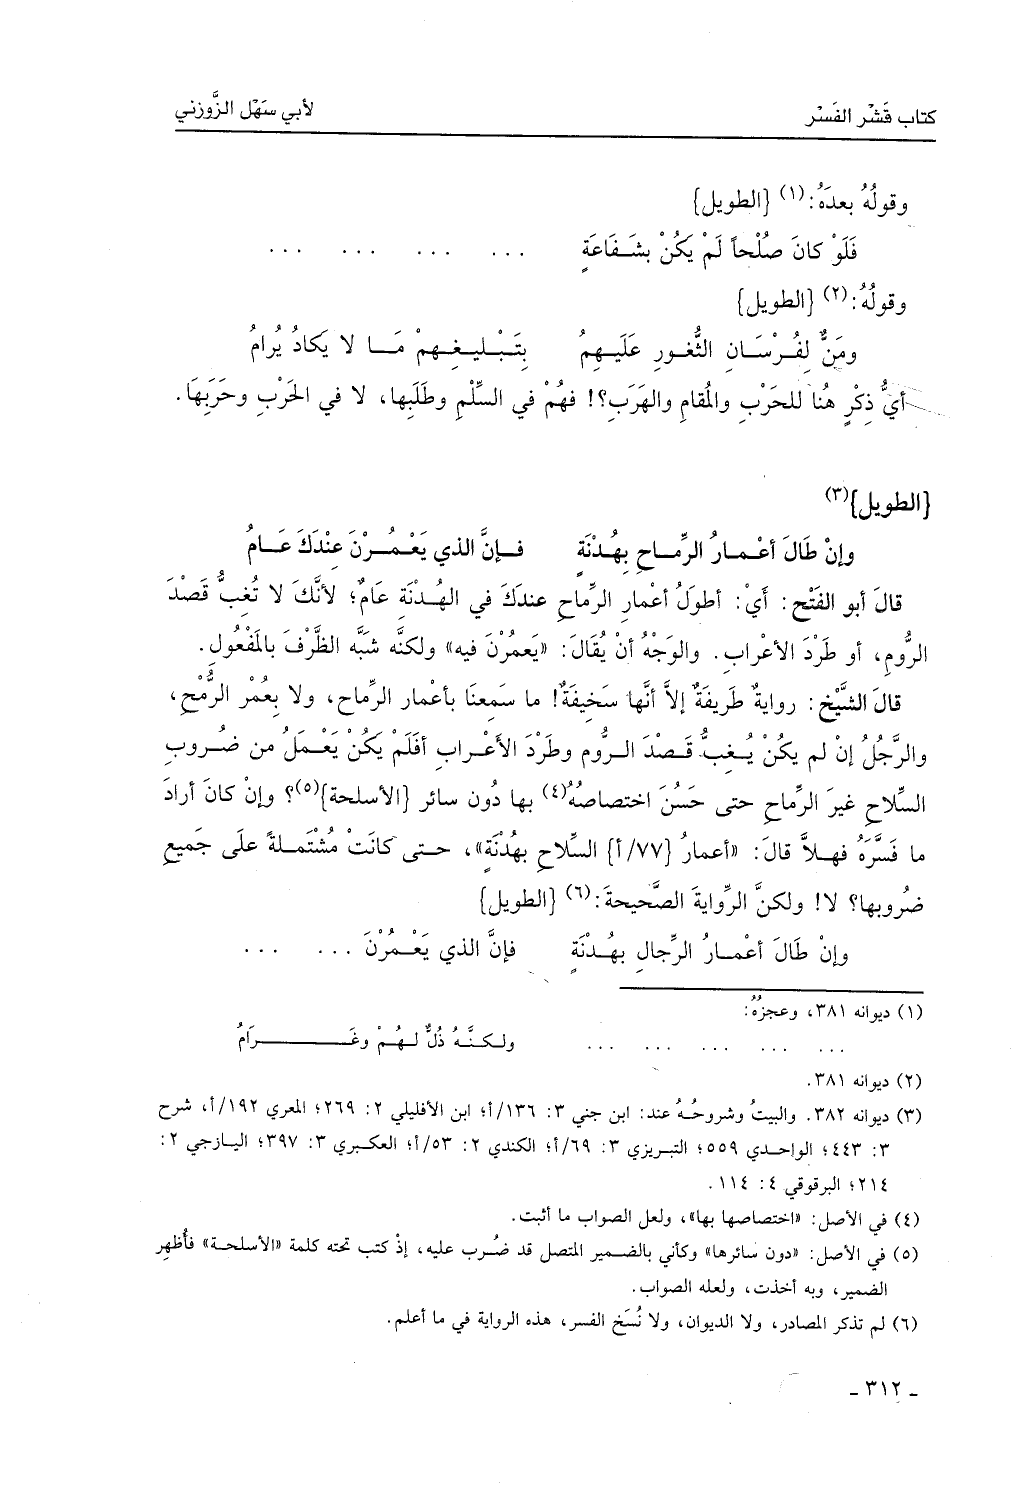 كتاب قَشْر الفَسْر لأبي سَهْل الزَّوزني
وقولُهُ بعدَهُ:(١) {الطويل}
فَلَوْ كانَ صُلْحاً لَمْ يَكُنْ بشَـفَاعَةٍ ... ... ... ...
وقولُهُ:(٢) {الطويل}
ومَنٌّ لِفُرْسَـانِ الثُّغورِ عَلَيهِمُ بِتَبْـلِيـغِـهِمْ مَـا لا يَكادُ يُرامُ
أيُّ ذِكْرٍ هنُا للحَرْبِ والمُقامِ والهَرَبِ؟! فهُمْ في السِّلْمِ وطَلَبِها، لا في الحَرْبِ وحَرَبِهَا.
{الطويل}(٣)
وإنْ طَالَ أعْـمـارُ الرِّمـاحِ بِهُدْنَةٍ فـإنَّ الذي يَعْـمُـرْنَ عِنْدَكَ عَـامُ
قالَ أبو الفَتْحِ: أَيْ: أطولُ أعْمارِ الرِّماحِ عندَكَ في الهُـدْنَةِ عَامٌ؛ لأنَّكَ لا تُغِبُّ قَصْدَ
الرُّومِ، أو طَرْدَ الأعْرابِ. والوَجْهُ أنْ يُقَالَ: «يَعمُرْنَ فيه» ولكنَّه شَبَّه الظَّرْفَ بالمَفْعُولِ.
قالَ الشَّيْخُ: روايةٌ طَريفَةٌ إلاَّ أنَّها سَخيفَةٌ! ما سَمِعنَا بأعْمارِ الرِّماحِ، ولا بِعُمْرِ الرُّمْحِ،
والرَّجُلُ إنْ لم يكُنْ يُغِبُّ قَـصْدَ الـرُّومِ وطَرْدَ الأعْـرابِ أفَلَمْ يَكُنْ يَعْـمَلُ من ضُروبِ
السِّلاحِ غيرَ الرِّماحِ حتى حَسُنَ اختصاصُهُ(٤) بها دُون سائر {الأسلحة}(٥)؟ وإنْ كانَ أرادَ
ما فَسَّرَهُ فهـلاَّ قالَ: «أعمارُ {٧٧/أ} السِّلاحِ بِهُدْنَةٍ»، حـتى كانَتْ مُشْتَمـلةً على جَميعِ
ضُروبها؟ لا! ولكنَّ الرِّوايةَ الصَّحيحةَ:(٦) {الطويل}
وإنْ طَالَ أعْمـارُ الرِّجالِ بِهُـدْنَةٍ فإنَّ الذي يَعْـمُرْنَ ... ...
(١) ديوانه ٣٨١، وعجزُهُ:
... ... ... ... ... ولـكـنَّـهُ ذُلٌّ لـهُـمْ وغَــــــــرَامُ
(٢) ديوانه ٣٨١.
(٣) ديوانه ٣٨٢. والبيتُ وشروحُـهُ عند: ابن جني ٣: ١٣٦/أ؛ ابن الأفليلي ٢: ٢٦٩؛ المعري ١٩٢/أ، شرح
٣: ٤٤٣؛ الواحـدي ٥٥٩؛ التبريزي ٣: ٦٩/أ؛ الكندي ٢: ٥٣/أ؛ العكبري ٣: ٣٩٧؛ اليـازجي ٢:
٢١٤؛ البرقوقي ٤: ١١٤.
(٤) في الأصل: «اختصاصها بها»، ولعل الصواب ما أثبت.
(٥) في الأصل: «دون سائرها» وكأني بالضمير المتصل قد ضُرب عليه، إذْ كتب تحته كلمة «الأسلحة» فأظهر
الضمير، وبه أخذت، ولعله الصواب.
(٦) لم تذكر المصادر، ولا الديوان، ولا نُسَخ الفسر، هذه الرواية في ما أعلم.
- ٣١٢ -